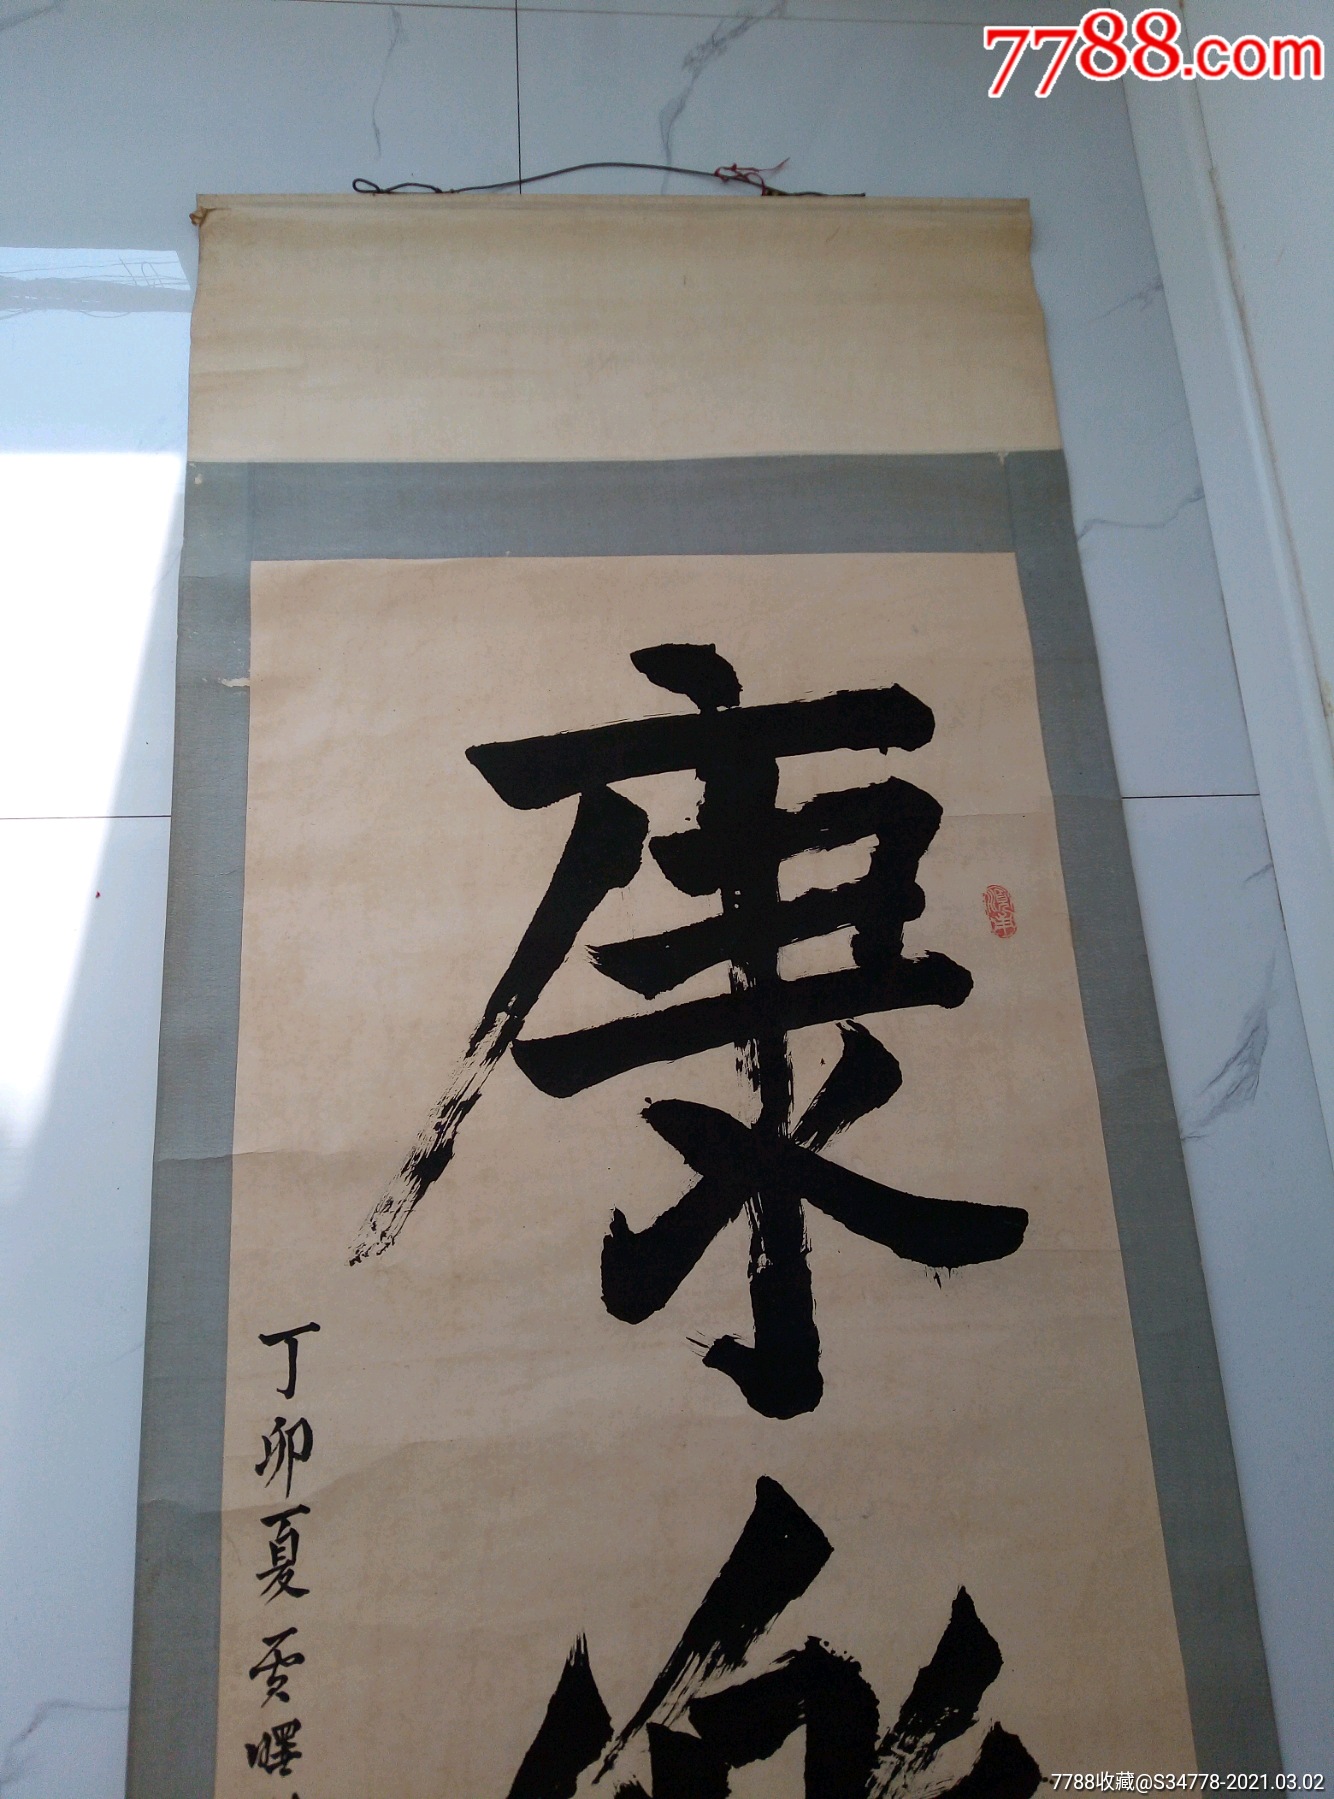 7788.com
康
丁卯夏贾曙
7788收藏@S34778-2021.03.02